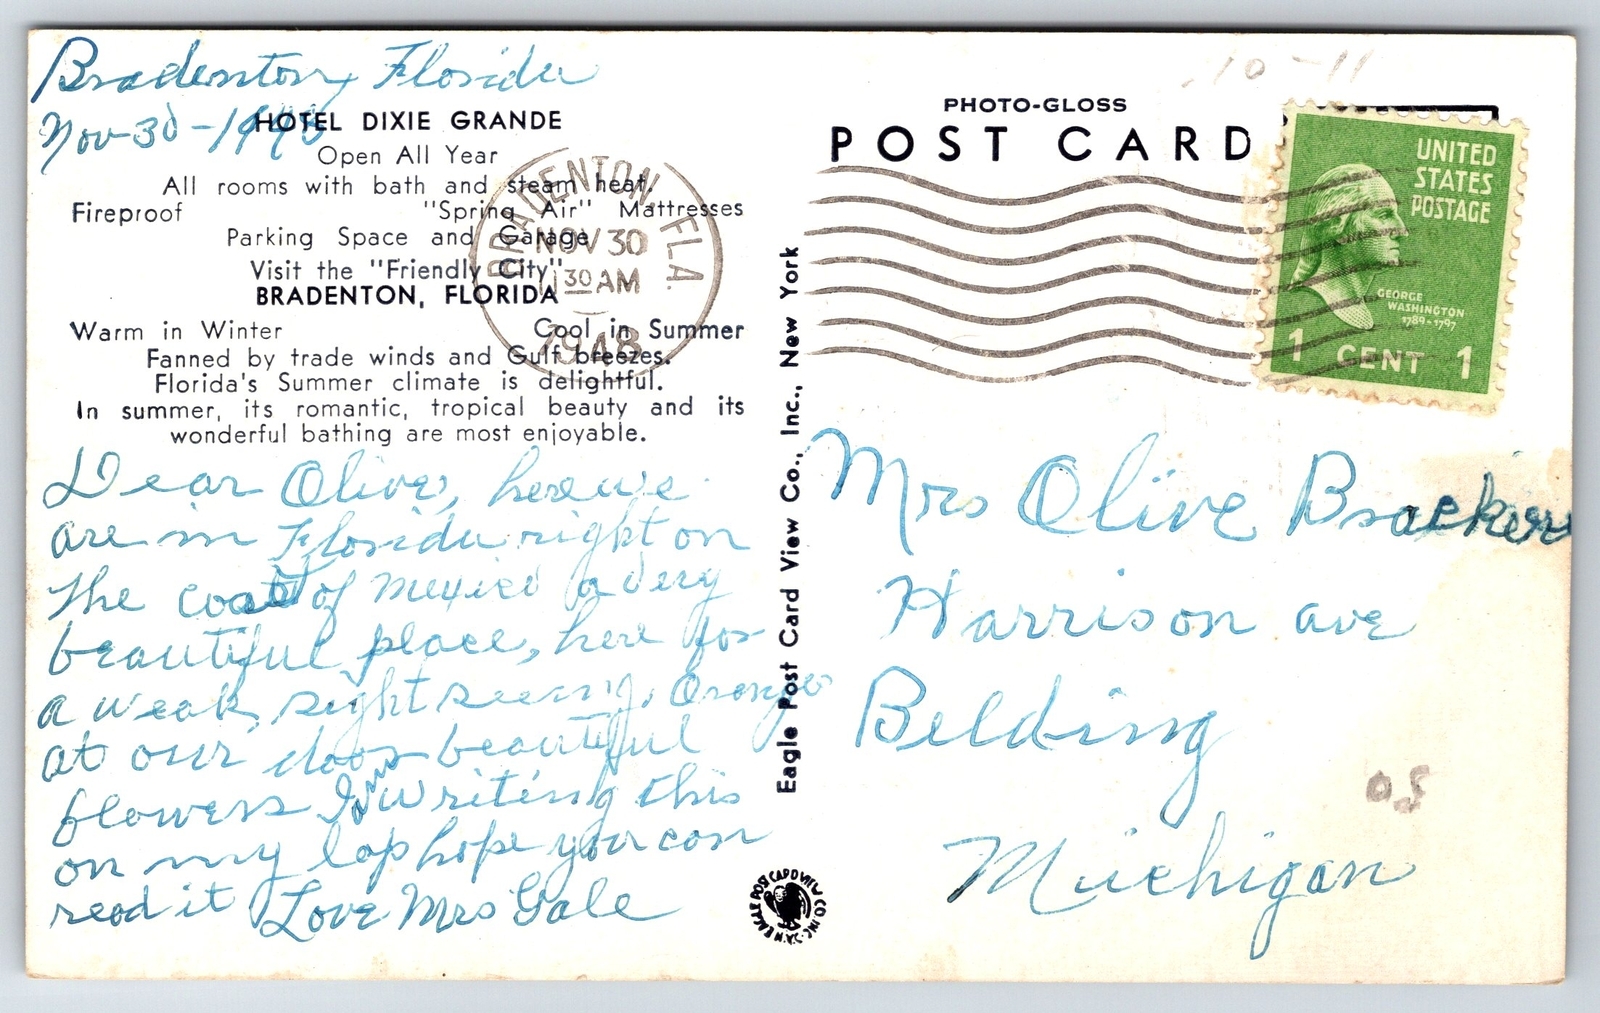 Bradenton, Florida
Nov-30-1948
HOTEL DIXIE GRANDE
Open All Year
All rooms with bath and steam heat.
Fireproof "Spring Air" Mattresses
Parking Space and Garage
Visit the "Friendly City"
BRADENTON, FLORIDA
Warm in Winter Cool in Summer
Fanned by trade winds and Gulf breezes.
Florida's Summer climate is delightful.
In summer, its romantic, tropical beauty and its
wonderful bathing are most enjoyable.
Dear Olive, here we
are in Florida right on
the coast of Mexico a very
beautiful place, here for
a weak, sight seeing, Oranges
at our door beautiful
flowers Im writing this
on my lap hope you can
read it Love Mrs Gale
BRADENTON, FLA.
NOV 30
30 AM
1948
Eagle Post Card View Co., Inc., New York
EAGLE POST CARD VIEW CO INC. N.Y.
10-11
PHOTO-GLOSS
POST CARD
UNITED
STATES
POSTAGE
GEORGE
WASHINGTON
1789-1797
1 CENT 1
Mrs Olive Brackers
Harrison ave
Belding
Michigan